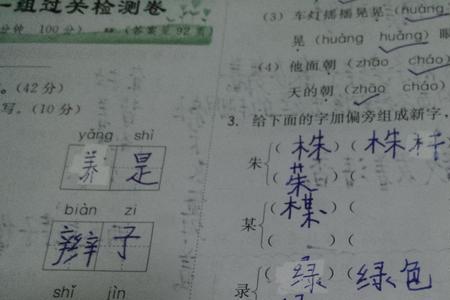 一组过关检测卷
分钟 100分) (答案见92页
。(42分)
写。(10分)
yǎng shì
养 是
biàn zi
辫 子
shǐ jìn
(3) 车灯摇摇晃晃(huǎng
晃(huàng huǎng)眼
(4) 他面朝(zhāo cháo)
天的朝(zhāo cháo)
3. 给下面的字加偏旁组成新字,
朱 (株)(株杆
(茱)(
某 (楳)(
( )(
录 (绿)(绿色